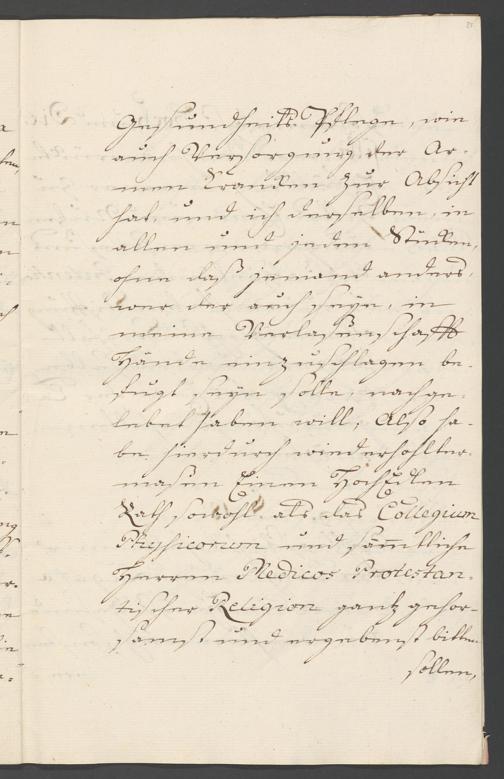 Gesundheits Pflege, wie
auch Versorgung der Ar-
men Krancken zur Absicht
hat, und ich derselben, in
allen und jeden Stücken,
ohne daß jemand anders,
wer der auch seye, in
meine Verlaßenschaffts
Hände einzuschlagen be-
fugt seyn solle, nachge-
lebet haben will; Also ha-
be hierdurch wiederhohlter-
masen Einen HochEdlen
Rath sowohl als das Collegium
Physicorum und sämtliche
Herren Medicos Protestan-
tischer Religion gantz gehor-
samst und ergebenst bitten
sollen,